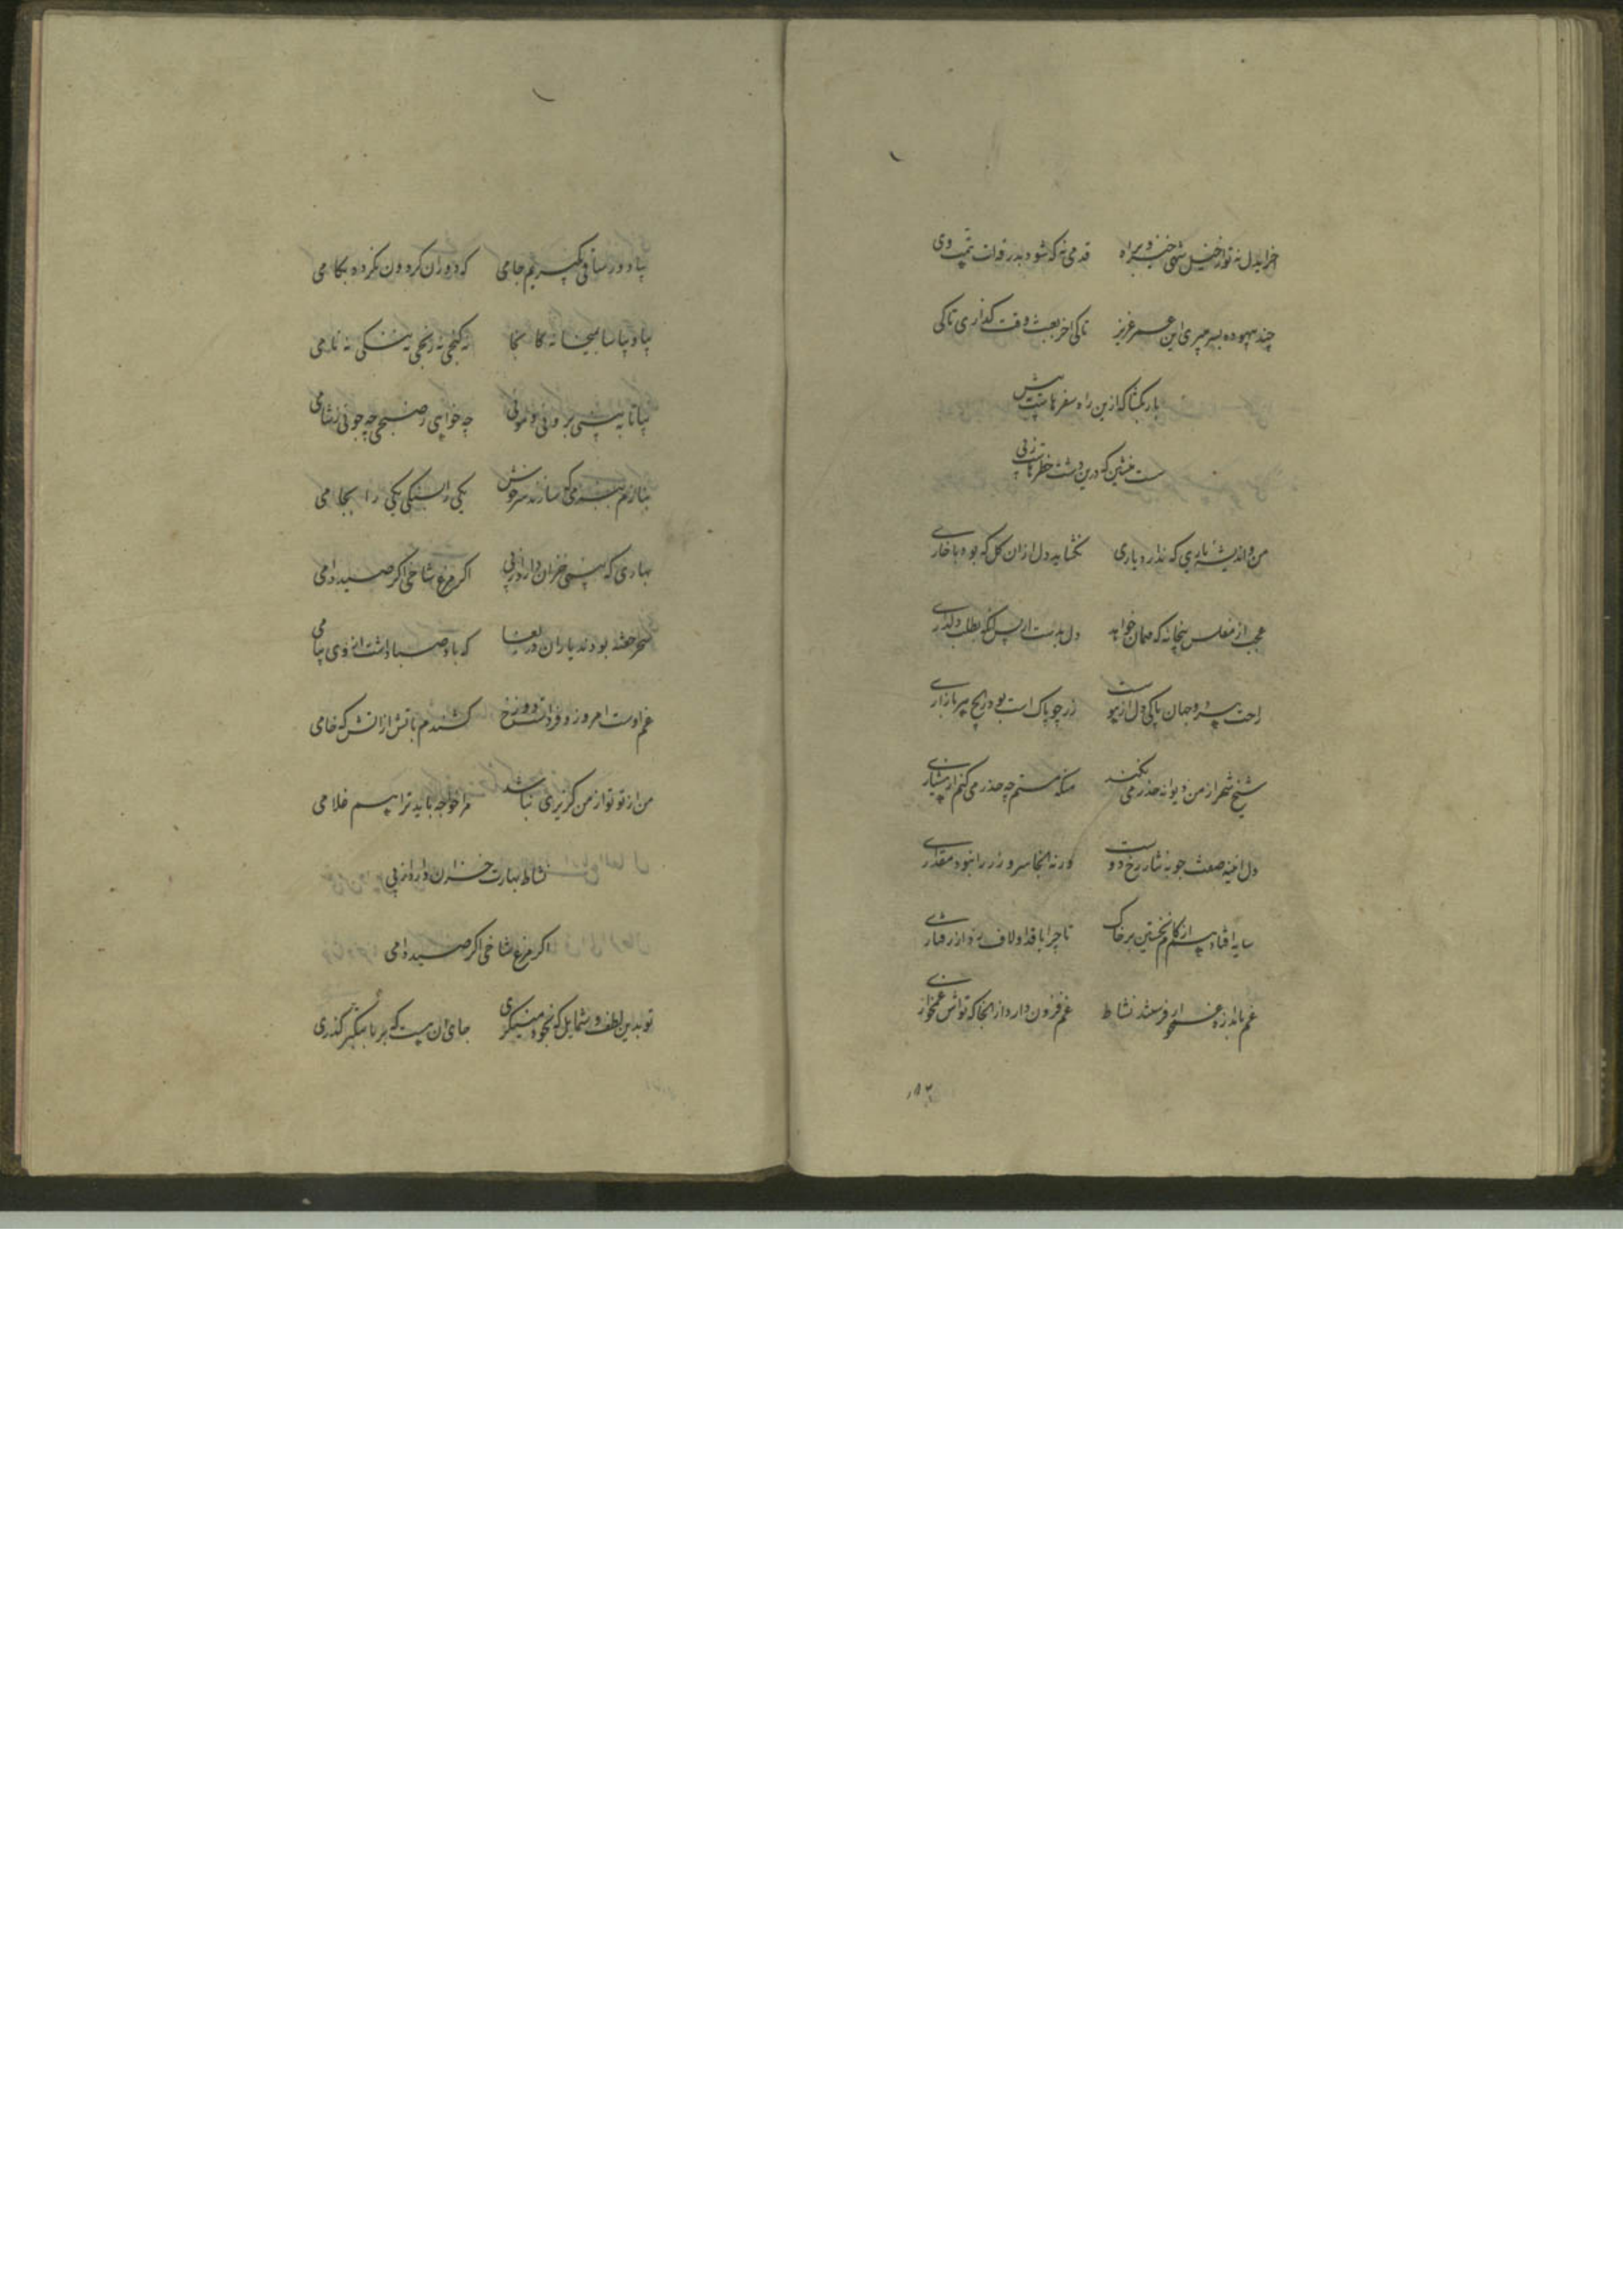 اخر ایدل نه تو از خیل شهی خیز و براه قدمی نه که شود بدرقه‌ات همت وی
چند بیهوده بسر میبری این عمر عزیز تا کی اخر بعبث وقت گذاری تا کی
بار بگشا که ازین راه سفرهاست به پیش
مست منشین که درین دشت خطرهاست ز پی
من و اندیشه یاری که ندارد یاری نگشاید دل ازان گل که بود با خاری
عجب از مفلس میخانه که مهمان خواهد دل بدست ار پس انکه بطلب دلداری
زر چو پاک است بود رایج هر بازاری
شیخ شهر از من دیوانه حذر می نکند منکه مستم چه حذر می کنم از هشیاری
دل ورنه انجا سر و زر را نبود مقداری
سایه افتاد از کام نخستین بر خاک تا چرا با قد او لاف زد از رفتاری
غم باندازه غمخوار فرستند نشاط غم فزون دارد از انجا که تواش غمخواری
۱۸۲
بیا دور ساقی بگیریم جامی که دوران گردون نگردد بکامی
بیا و بیاسا بمیخانه کانجا نه گنجی نه رنجی نه ننگی نه نامی
بیا تا به بینی برونی درونی چه خواهی ز صبحی چه جوئی ز شامی
بنازم به بزمی که سازند سرخوش یکی را بسنگی یکی را بجامی
بهاری که بینی خزان دارد از پی اگر مرغ شاخی اگر صید دامی
سحر خفته بودند یاران در یغا که باد صبا داشت از وی پیامی
غم اوست امروز و فردا دوزخ کشندم باتش از اتش که خامی
من از تو تو از من گزیری نباشد مرا خوجه باید ترا هم غلامی
نشاط بهارت خزان دارد از پی
اگر مرغ شاخی اگر صید دامی
تو بدین لطف و شمایل که بخود مینگری جای ان نیست که بر ما بتکبر گذری